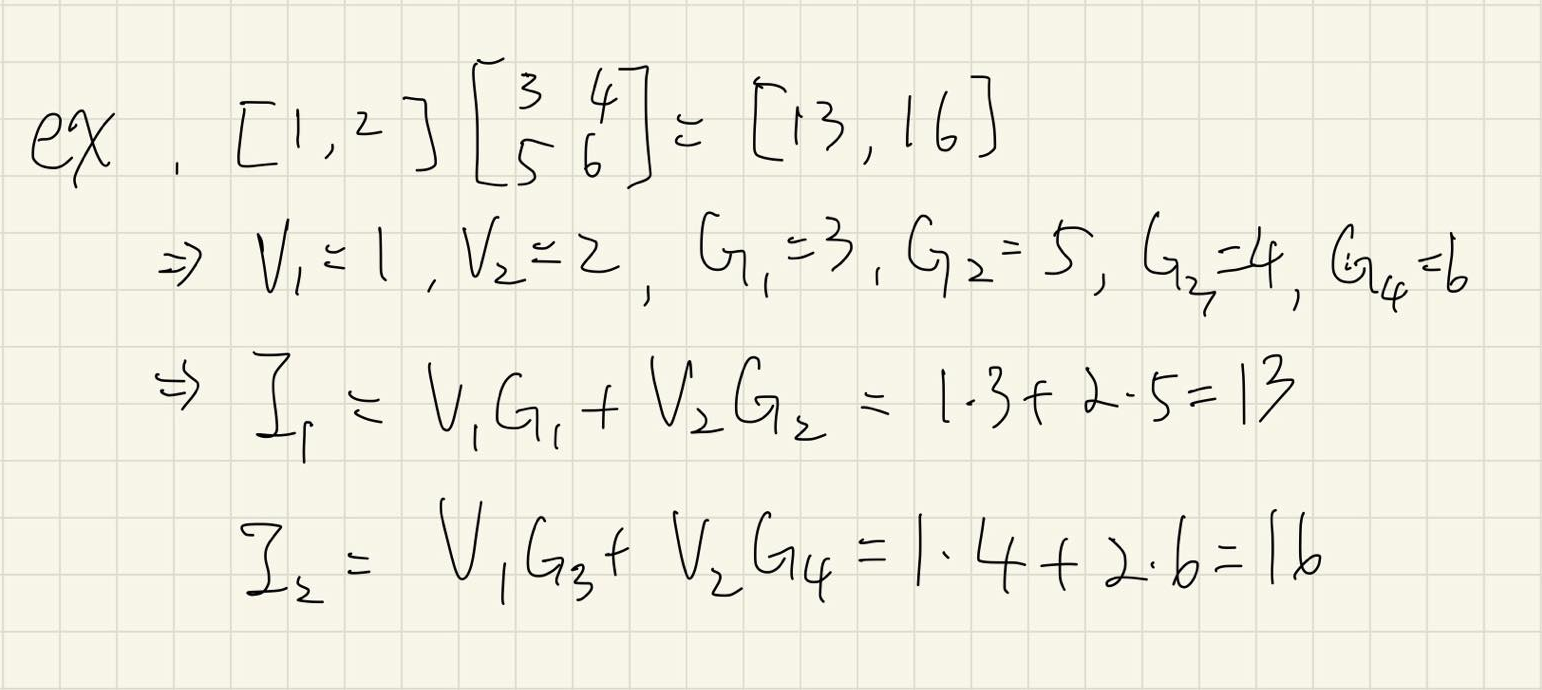 ex. [1, 2] [3 4; 5 6] = [13, 16]
⇒ V₁ = 1, V₂ = 2, G₁ = 3, G₂ = 5, G₃ = 4, G₄ = 6
⇒ I₁ = V₁G₁ + V₂G₂ = 1·3 + 2·5 = 13
I₂ = V₁G₃ + V₂G₄ = 1·4 + 2·6 = 16